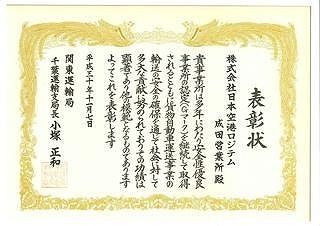 表彰状
株式会社日本空港ロジテム
成田営業所 殿
貴事業所は多年にわたり安全性優良
事業所の認定(Gマーク)を継続して取得
されるとともに貨物自動車運送事業の
輸送の安全の確保を通じて社会に対して
多大な貢献に努められており、その功績は
顕著であり他の模範となるものであります
よってこれを表彰します
平成三十年十一月七日
関東運輸局
千葉運輸支局長 小塚 正和